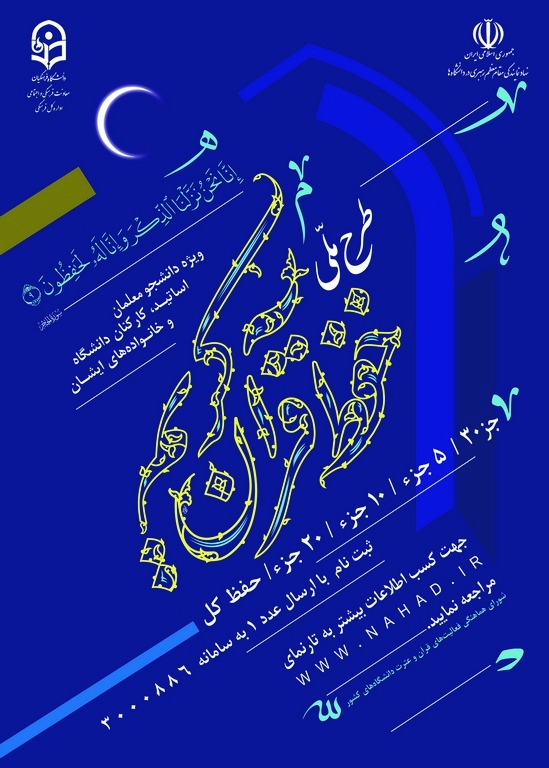 جمهوری اسلامی ایران
نهاد نمایندگی مقام معظم رهبری در دانشگاه‌ها
دانشگاه فرهنگیان
معاونت فرهنگی و اجتماعی
اداره کل فرهنگی
إِنَّا نَحْنُ نَزَّلْنَا الذِّكْرَ وَإِنَّا لَهُ لَحَافِظُونَ ۹
طرح ملّی
حفظ قرآن کریم
ویژه دانشجو معلمان
اساتید، کارکنان دانشگاه
و خانواده‌های ایشان
جزء ۳۰ / ۵ جزء / ۱۰ جزء / ۲۰ جزء / حفظ کل
ثبت نام با ارسال عدد ۱ به سامانه ۳۰۰۰۸۸۶
جهت کسب اطلاعات بیشتر به تارنمای
WWW.NAHAD.IR
مراجعه نمایید.
شورای هماهنگی فعالیت‌های قرآن و عترت دانشگاه‌های کشور